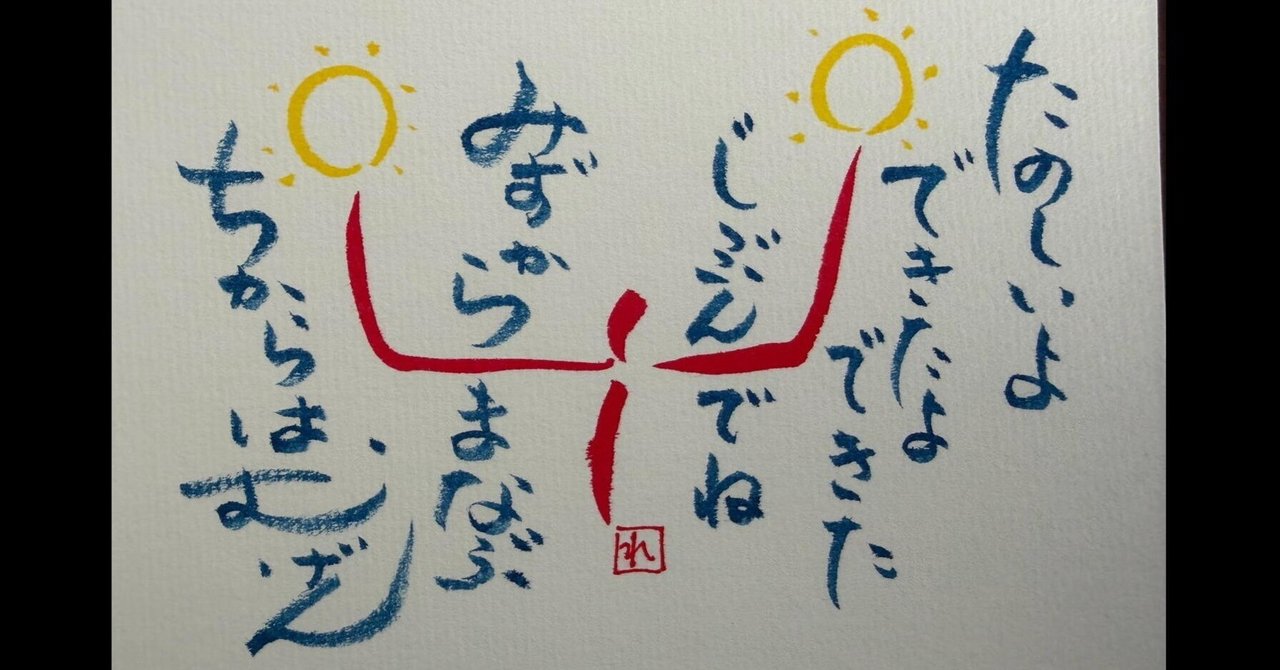 たのしいよ
できたよ
できた
じぶんでね
みずからまなぶ
ちからはむげん
れ